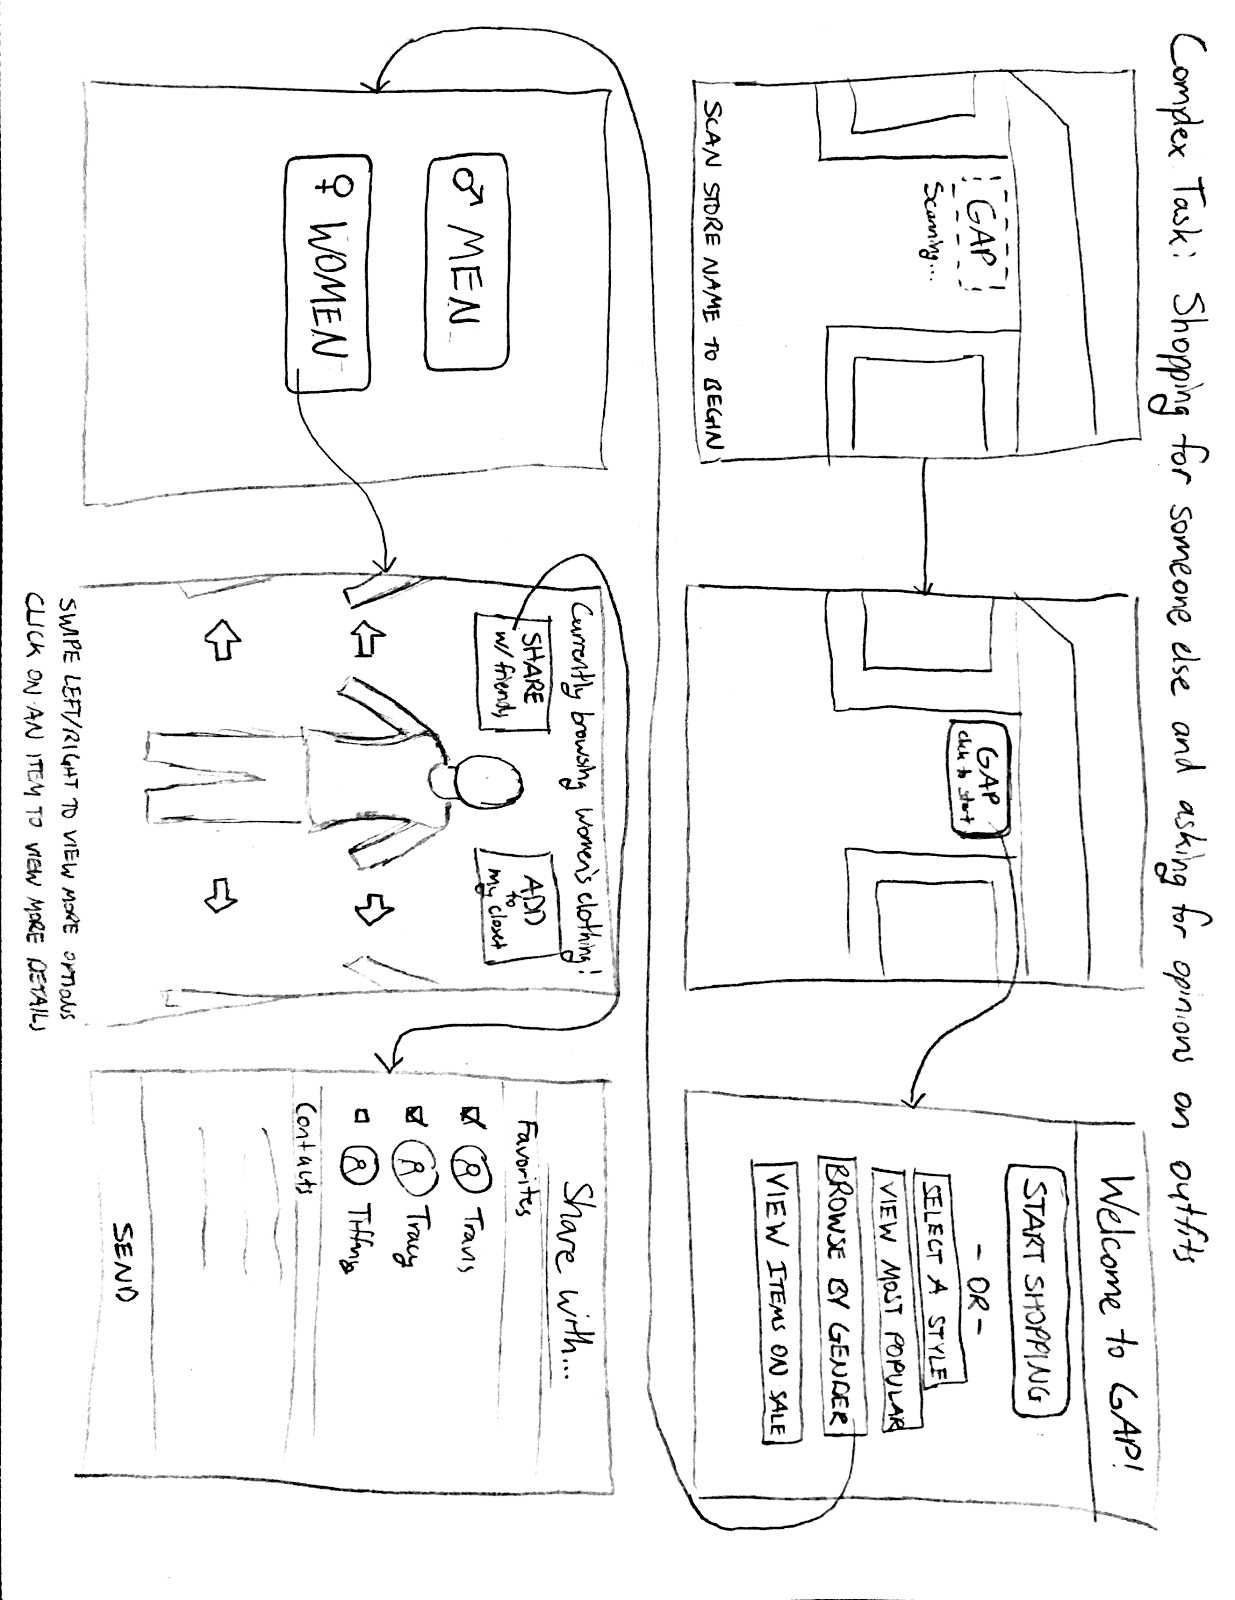 Complex Task: Shopping for someone else and asking for opinions on outfits
GAP
Scanning...
SCAN STORE NAME TO BEGIN
GAP
click to start
Welcome to GAP!
START SHOPPING
- OR -
SELECT A STYLE
VIEW MOST POPULAR
BROWSE BY GENDER
VIEW ITEMS ON SALE
♂ MEN
♀ WOMEN
Currently browsing women's clothing!
SHARE
w/ friends
ADD
to
my closet
SWIPE LEFT/RIGHT TO VIEW MORE OPTIONS
CLICK ON AN ITEM TO VIEW MORE DETAILS
Share with...
Favorites
Travis
Tracy
Tiffany
Contacts
SEND